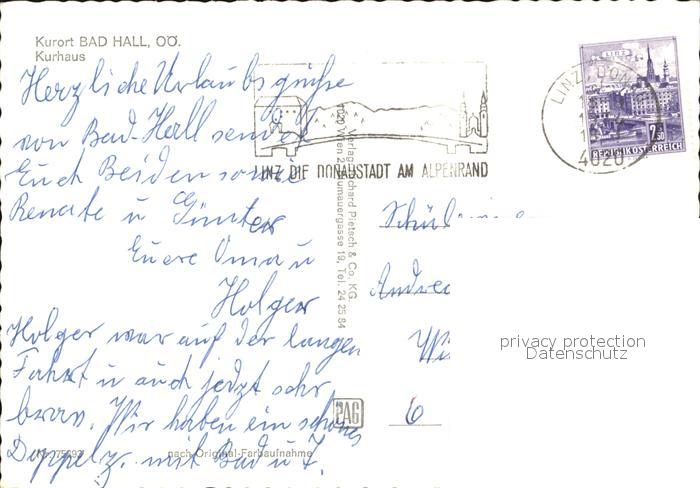 Kurort BAD HALL, OÖ.
Kurhaus
Herzliche Urlaubsgrüße
von Bad-Hall senden
Euch Beiden sowie
Renate u Günter
Euere Oma u
Holger
Holger war auf der langen
Fahrt u auch jetzt sehr
brav. Wir haben ein schönes
Doppelz. mit Bad u
nach Original-Farbaufnahme
Verlag Richard Pietsch & Co. KG.
1020 Wien 2, Tel. 24 25 84
PAG
LINZ DIE DONAUSTADT AM ALPENRAND
LINZ DON
4020
LINZ
2,50
REPUBLIK ÖSTERREICH
Schül
Andrea
6
privacy protection
Datenschutz